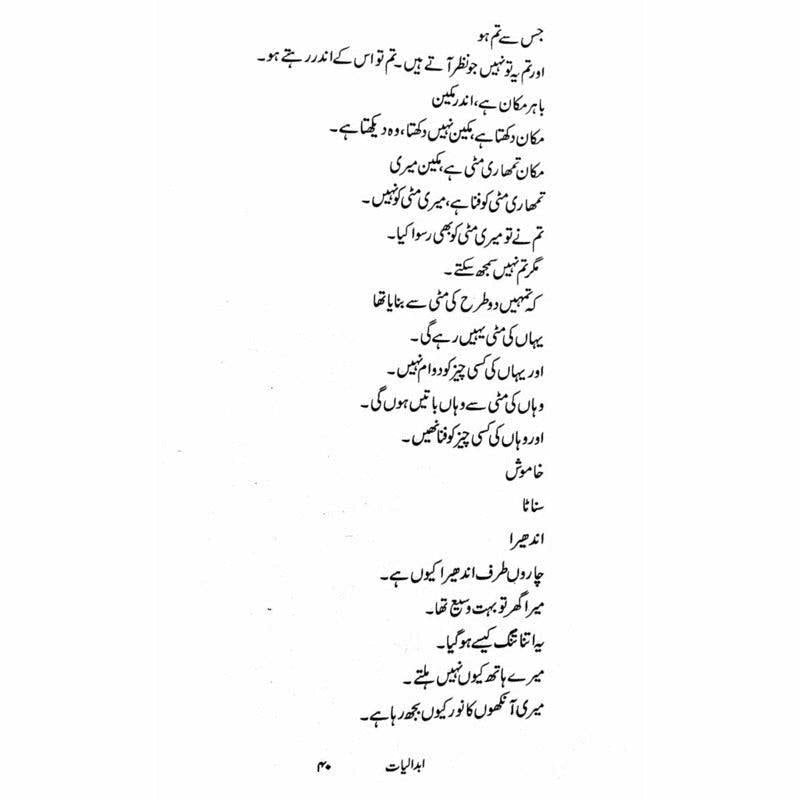 جس سے تم ہو
اور تم یہ تو نہیں جو نظر آتے ہیں۔ تم تو اس کے اندر رہتے ہو۔
باہر مکان ہے، اندر مکین
مکان دکھتا ہے، مکین نہیں دکھتا، وہ دیکھتا ہے۔
مکان تمھاری مٹی ہے، مکین میری
تمھاری مٹی کو فنا ہے، میری مٹی کو نہیں۔
تم نے تو میری مٹی کو بھی رسوا کیا۔
مگر تم نہیں سمجھ سکتے۔
کہ تمہیں دو طرح کی مٹی سے بنایا تھا
یہاں کی مٹی یہیں رہے گی۔
اور یہاں کی کسی چیز کو دوام نہیں۔
وہاں کی مٹی سے وہاں باتیں ہوں گی۔
اور وہاں کی کسی چیز کو فنا نھیں۔
خاموش
سناٹا
اندھیرا
چاروں طرف اندھیرا کیوں ہے۔
میرا گھر تو بہت وسیع تھا۔
یہ اتنا تنگ کیسے ہو گیا۔
میرے ہاتھ کیوں نہیں ہلتے۔
میری آنکھوں کا نور کیوں بجھ رہا ہے۔
ابدالیات ۴۰